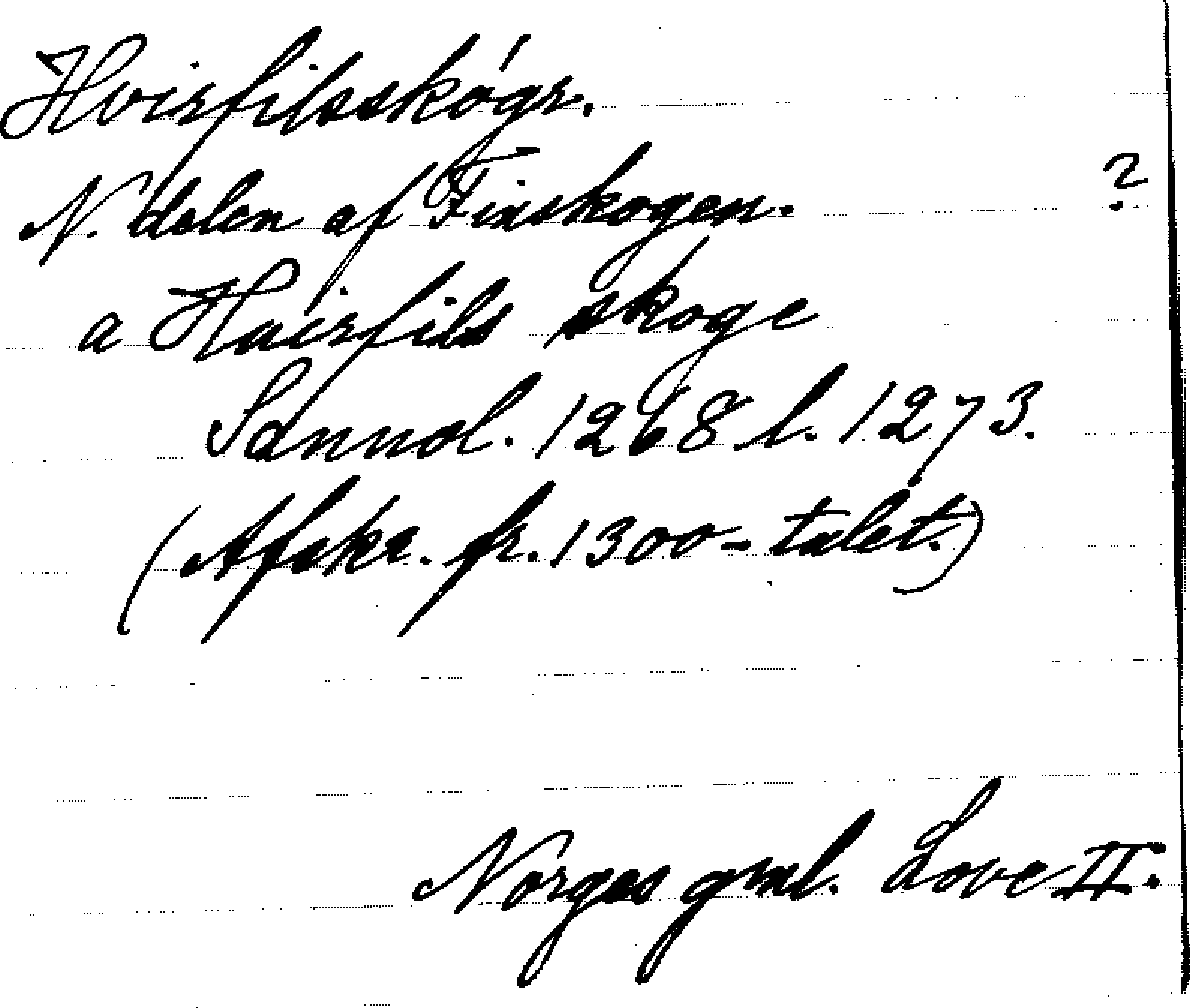 Hvirfilsskógr.
N. delen af Finskogen. ?
a Hvirfils skoge
Sannol. 1268 l. 1273.
(Afskr. fr. 1300-talet.)
Norges gml. Love II.